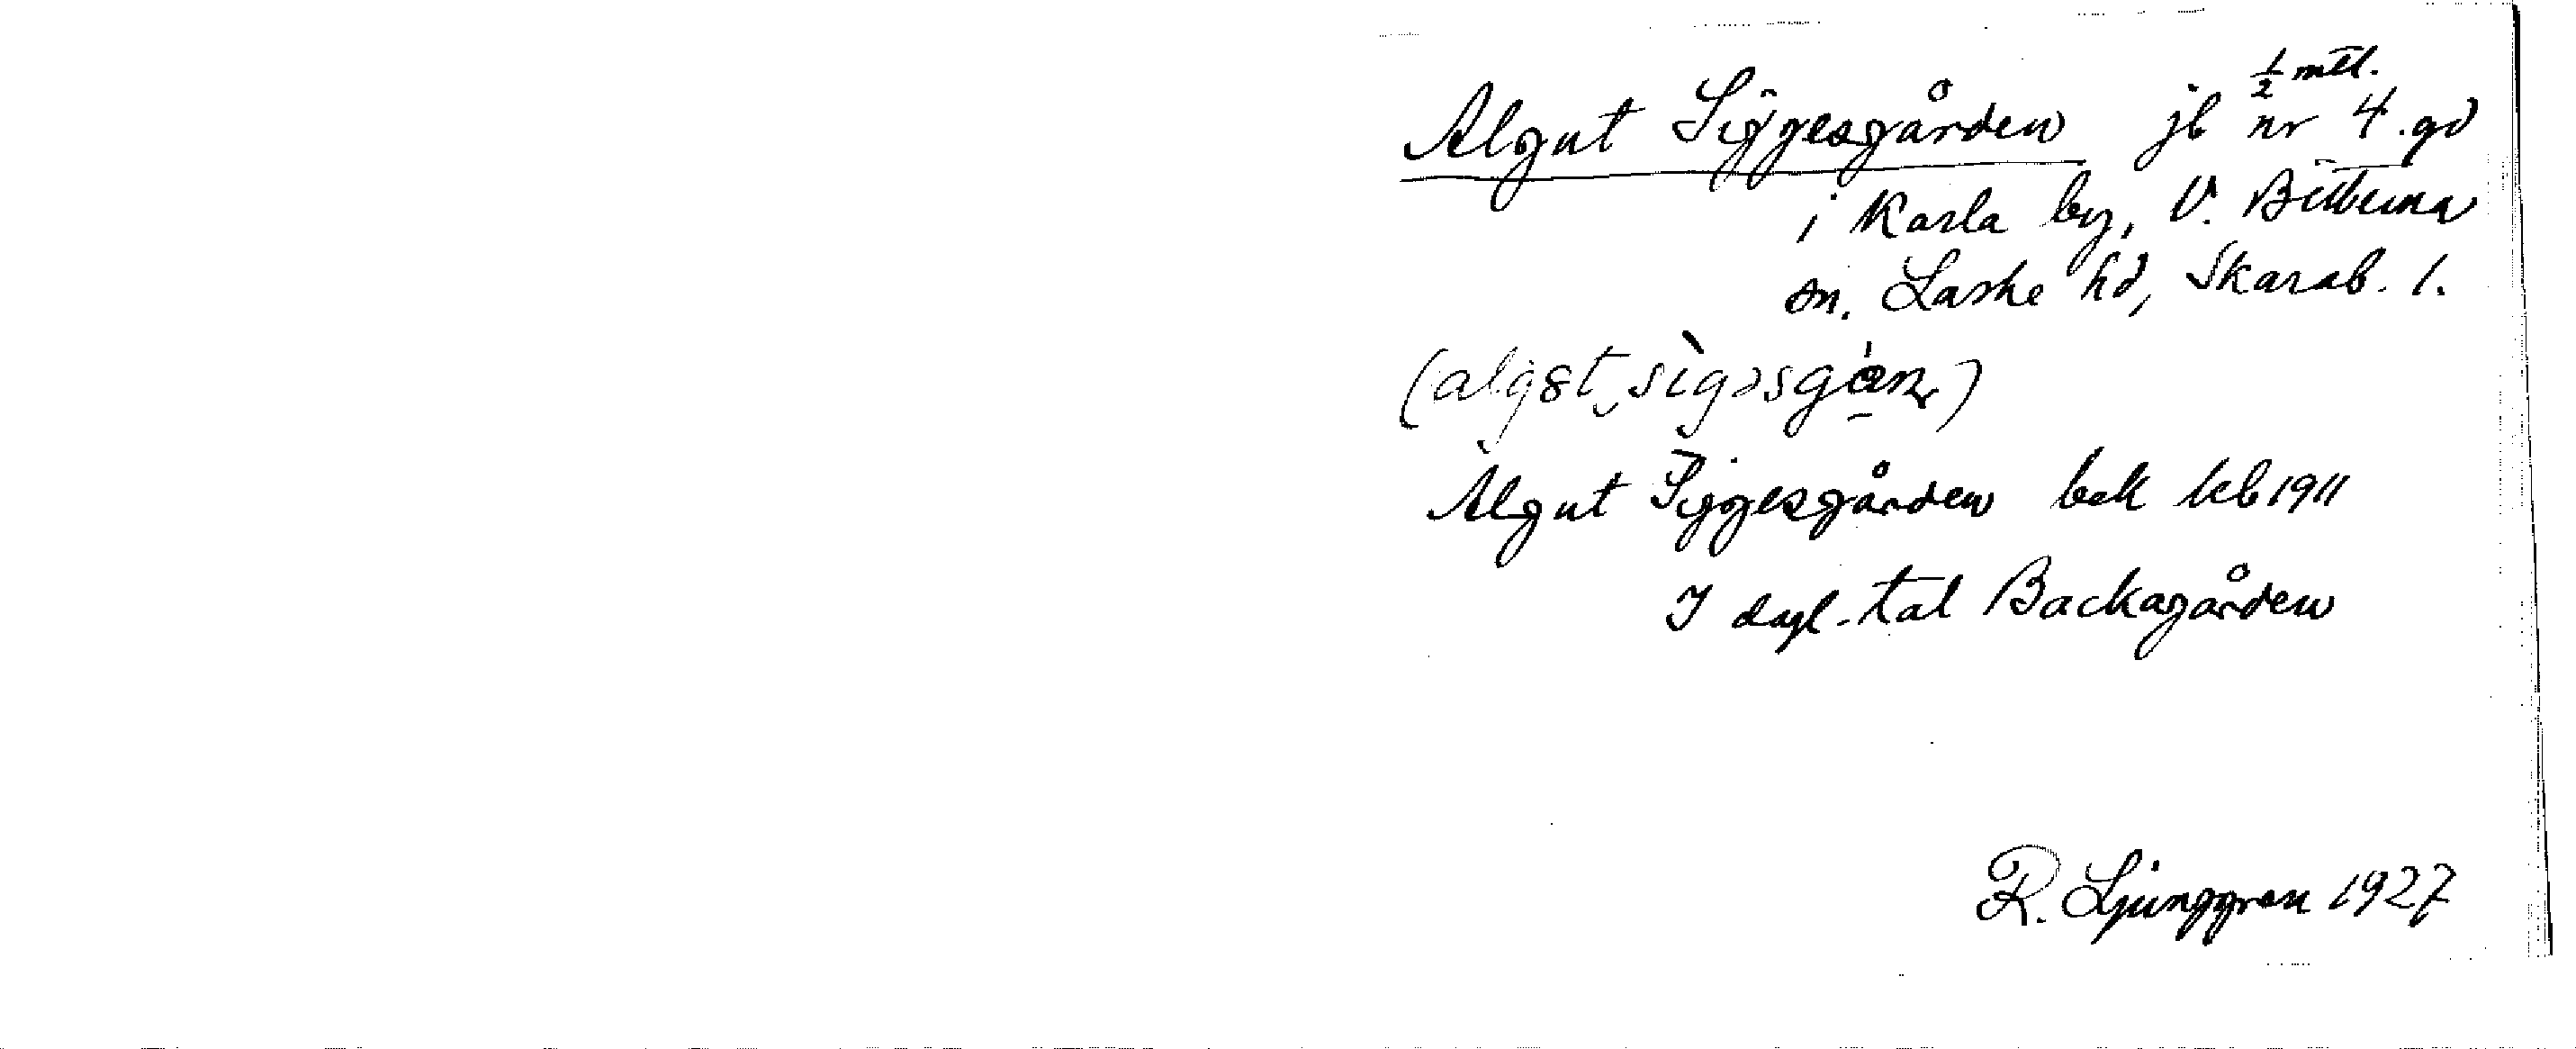 ½ mtl.
Algut Siggesgården jb nr 4. gd
i Karla by, V. Bitterna
sn. Laske hd, Skarab. l.
Algut Siggesgården bok kb 1911
I dagl. tal Backagården
R. Ljunggren 1927